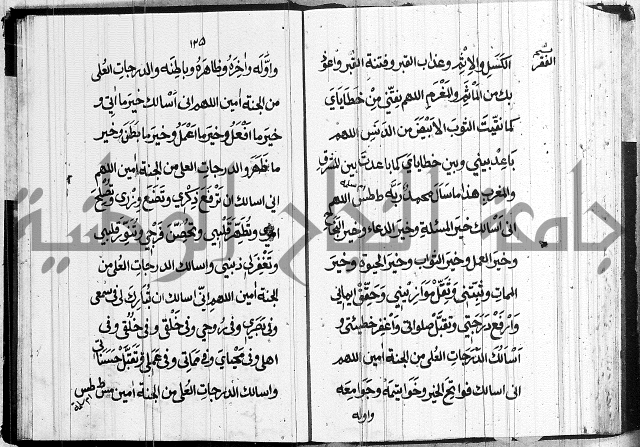 الكسل والاثم وعذاب القبر وفتنة القبر واعوذ
بك من المأثم والمغرم اللهم نقني من خطاياي
كما نقيت الثوب الابيض من الدنس اللهم
باعد بيني وبين خطاياي كما باعدت بين المشرق
والمغرب هذا ما سأل محمد ربه طس اللهم
اني اسالك خير المسئلة وخير الدعاء وخير النجاح
وخير العمل وخير الثواب وخير الحيوة وخير
الممات وثبتني وثقل موازيني وحقق ايماني
وارفع درجتي وتقبل صلواتي واغفر خطيئتي و
اسألك الدرجات العلى من الجنة امين اللهم
اني اسالك فواتح الخير وخواتيمه وجوامعه
واوله
١٣٥
واوله واخره وظاهره وباطنه والدرجات العلى
من الجنة امين اللهم اني اسالك خير ما اتي و
خير ما افعل وخير ما اعمل وخير ما بطن وخير
ما ظهر والدرجات العلى من الجنة امين اللهم
اني اسالك ان ترفع ذكري وتضع وزري وتصلح
امري وتطهر قلبي وتحصن فرجي وتنور قلبي
وتغفر لي ذنبي واسالك الدرجات العلى من
الجنة امين اللهم اني اسالك ان تبارك لي في سمعي
وفي بصري وفي روحي وفي خلقي وفي خلقي وفي
اهلي وفي محياي وفي مماتي وفي عملي وتقبل حسناتي
واسالك الدرجات العلى من الجنة امين مس طس
جامعة النجاح الوطنية